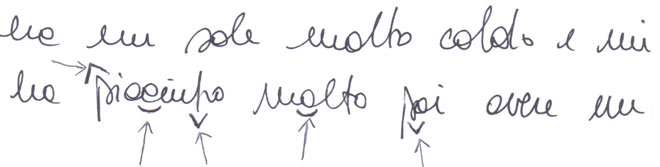 ha un sole molto caldo e mi
ha piaciuto molto poi avere un